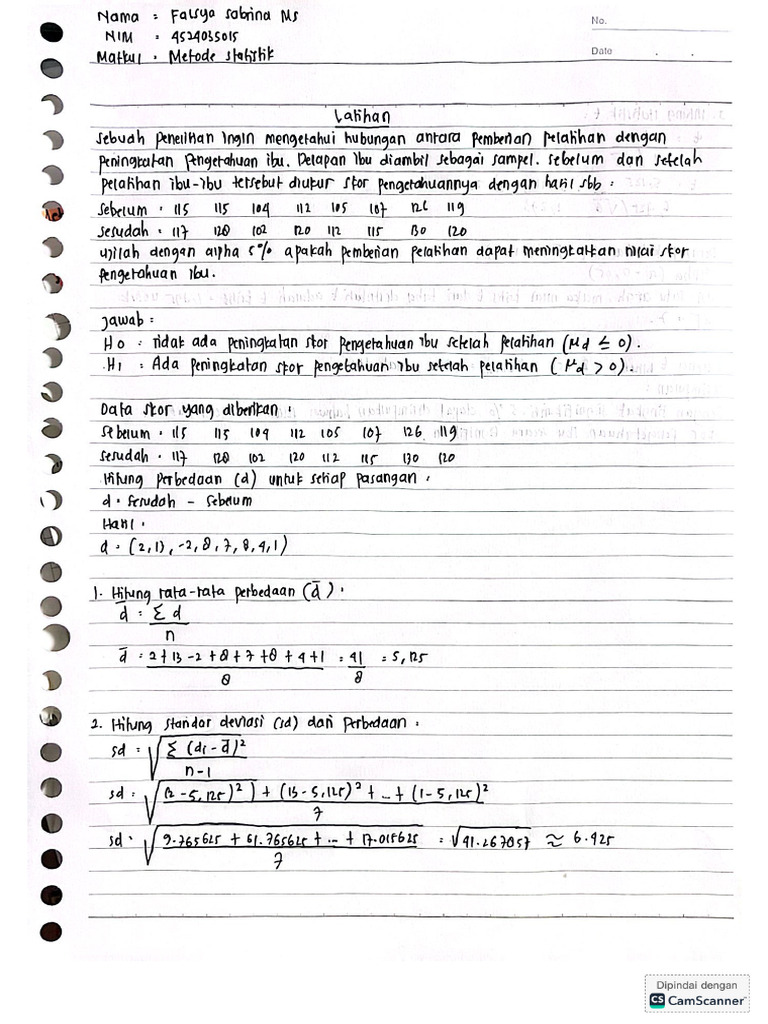 Nama : Falsya Sabrina Ms
NIM : 4524035015
Matkul : Metode Statistik
No.
Date . .
Latihan
Sebuah penelitian ingin mengetahui hubungan antara pemberian pelatihan dengan
peningkatan pengetahuan ibu. Delapan ibu diambil sebagai sampel. Sebelum dan setelah
pelatihan ibu-ibu tersebut diukur skor pengetahuannya dengan hasil sbb :
Sebelum : 115 115 104 112 105 107 126 119
Sesudah : 117 128 102 120 112 115 130 120
ujilah dengan alpha 5% apakah pemberian pelatihan dapat meningkatkan nilai skor
pengetahuan ibu.
Jawab :
H0 : Tidak ada peningkatan skor pengetahuan ibu setelah pelatihan (μd ≤ 0).
H1 : Ada peningkatan skor pengetahuan ibu setelah pelatihan (μd > 0).
Data skor yang diberikan :
Sebelum : 115 115 104 112 105 107 126 119
Sesudah : 117 128 102 120 112 115 130 120
Hitung perbedaan (d) untuk setiap pasangan :
d = Sesudah - Sebelum
Hasil :
d = (2, 13, -2, 8, 7, 8, 4, 1)
1. Hitung rata-rata perbedaan (d̄) :
d̄ = Σ d / n
d̄ = 2 + 13 - 2 + 8 + 7 + 8 + 4 + 1 / 8 = 41 / 8 = 5,125
2. Hitung standar deviasi (sd) dari perbedaan :
sd = √ Σ (di - d̄)² / n-1
sd = √ (2 - 5,125)²) + (13 - 5,125)² + ... + (1 - 5,125)² / 7
sd = √ 9.765625 + 61.765625 + ... + 17.015625 / 7 = √41.267857 ≈ 6.425
Dipindai dengan
CS CamScanner